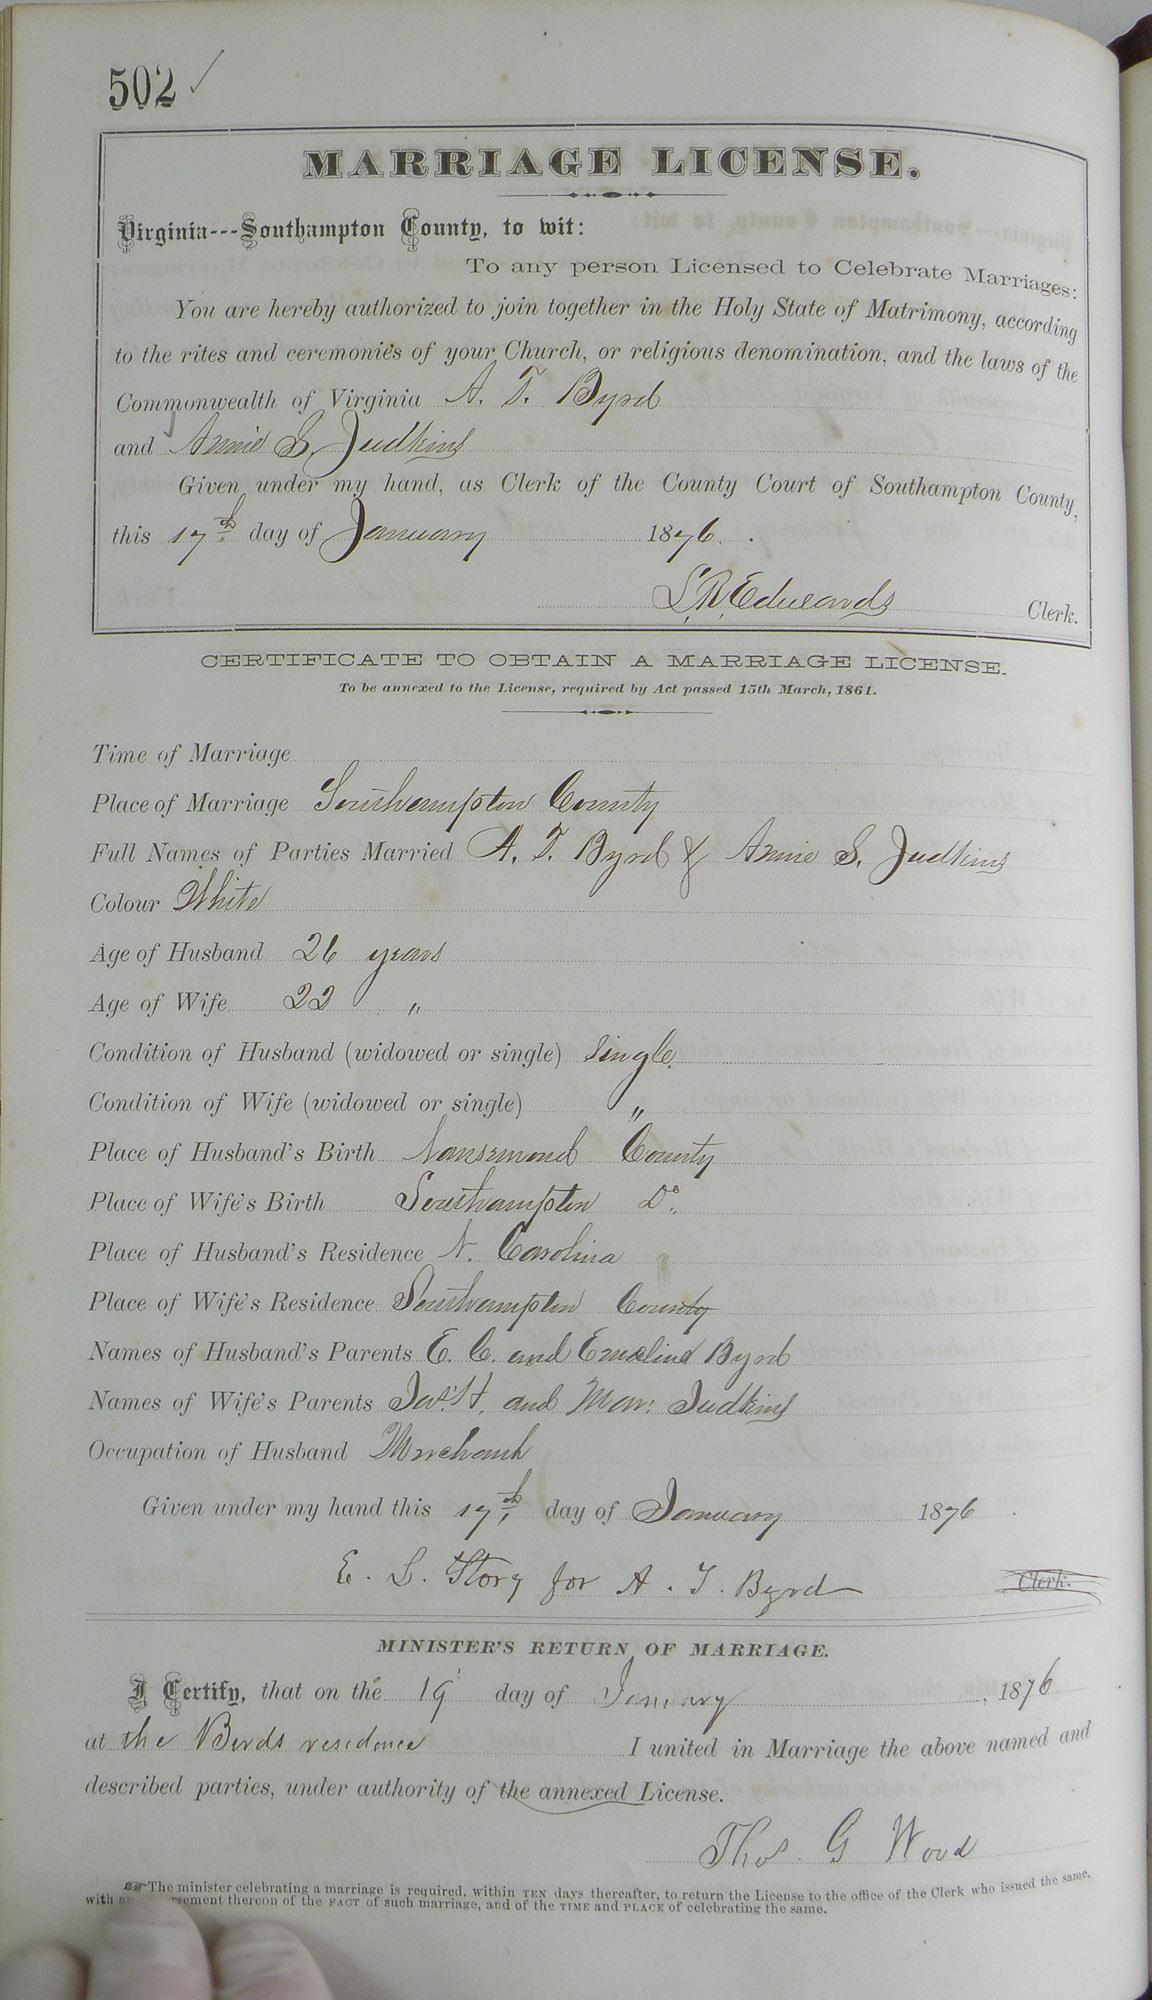 502 ✓
MARRIAGE LICENSE.
Virginia---Southampton County, to wit:
To any person Licensed to Celebrate Marriages:
You are hereby authorized to join together in the Holy State of Matrimony, according
to the rites and ceremonies of your Church, or religious denomination, and the laws of the
Commonwealth of Virginia A. T. Byrd
and Annie S. Judkins
Given under my hand, as Clerk of the County Court of Southampton County,
this 17th day of January 1876.
L. R. Edwards Clerk.
CERTIFICATE TO OBTAIN A MARRIAGE LICENSE.
To be annexed to the License, required by Act passed 15th March, 1861.
Time of Marriage
Place of Marriage Southampton County
Full Names of Parties Married A. T. Byrd & Annie S. Judkins
Colour White
Age of Husband 26 years
Age of Wife 22 "
Condition of Husband (widowed or single) Single
Condition of Wife (widowed or single) "
Place of Husband's Birth Nansemond County
Place of Wife's Birth Southampton Do.
Place of Husband's Residence N. Carolina
Place of Wife's Residence Southampton County
Names of Husband's Parents E. C. and Emeline Byrd
Names of Wife's Parents Jas. H. and Mary Judkins
Occupation of Husband Merchant
Given under my hand this 17th day of January 1876.
E. S. Story for A. T. Byrd Clerk.
MINISTER'S RETURN OF MARRIAGE.
I Certify, that on the 19 day of January, 1876
at the residence I united in Marriage the above named and
described parties, under authority of the annexed License.
Thos. G Wood
The minister celebrating a marriage is required, within TEN days thereafter, to return the License to the office of the Clerk who issued the same,
with thereon of the FACT of such marriage, and of the TIME and PLACE of celebrating the same.